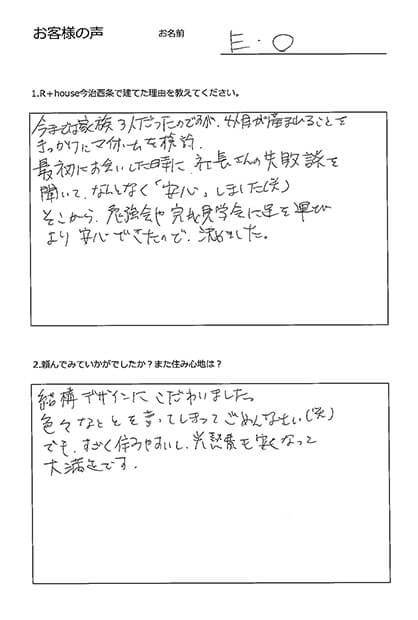 お客様の声
お名前
E・O
1.R+house今治西条で建てた理由を教えてください。
今までは家族3人だったのですが、4人目が産まれることを
きっかけにマイホームを検討。
最初にお会いした時に、社長さんの失敗談を
聞いて、なんとなく「安心」しました(笑)
そこから、勉強会や完成見学会に足を運び
より安心できたので、決めました。
2.頼んでみていかがでしたか?また住み心地は?
結構デザインにこだわりました。
色々なことを言ってしまってごめんなさい(笑)
でも、すごく住みやすいし、光熱費も安くなって
大満足です.